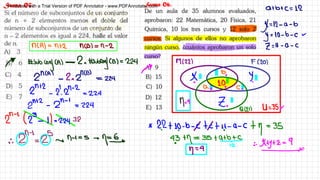 Trial Version of PDF Annotator - www.PDFAnnotator
Si el número de subconjuntos de un conjunto
de n + 2 elementos menos el doble del
número de subconjuntos de un conjunto de
n − 2 elementos es igual a 224, halle el valor
de n.
n(A) = n+2
n(B) = n-2
A) 3
B) 6
C) 4
D) 5
E) 7
= 224
2^(n+2) - 2·2^(n-2) = 224
2^(n+2) - 2^(n-1) = 224
2^(n-1) (2^3 - 1) = 224 32
2^(n-1) = 2^5
→ n-1=5 → n=6
De un aula de 35 alumnos evaluados,
aprobaron: 22 Matemática, 20 Física, 21
Química, 10 los tres cursos y 12 solo 2
cursos. Si algunos de ellos no aprobaron
ningún curso, ¿cuántos aprobaron un solo
curso?
A) 9
B) 15
C) 10
D) 12
E) 13
a+b+c=12
y=
x=10-b-c
z=
M(22)
F(20)
U=35
+ n = 35
43+n = 35+a+b+c
n=4
x+y+z=9